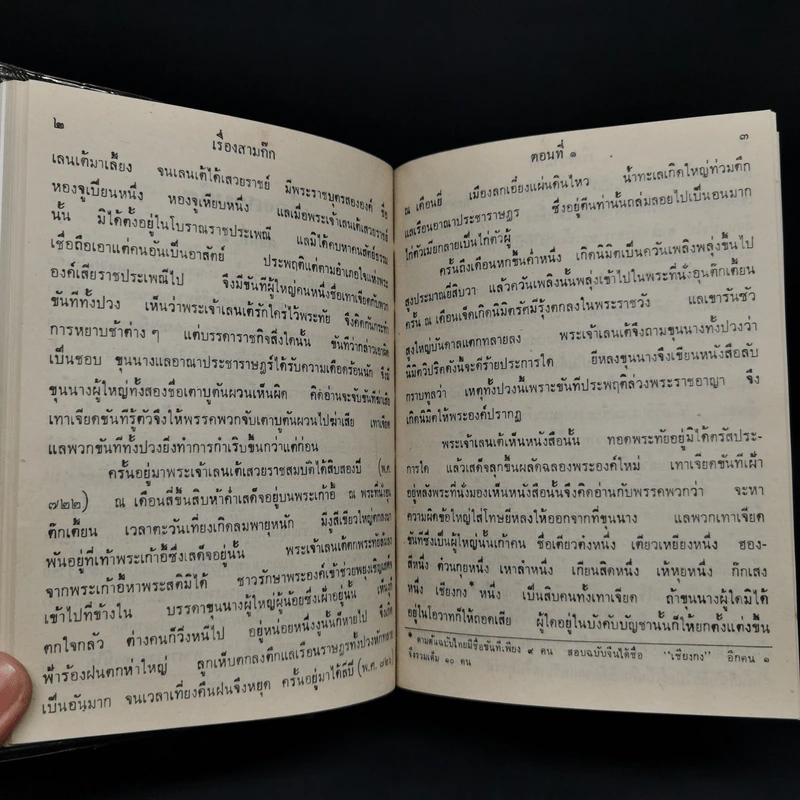 ๒
เรื่องสามก๊ก
เลนเต้มาเลี้ยง จนเลนเต้ได้เสวยราชย์ มีพระราชบุตรสององค์ ชื่อ
หองจูเปียนหนึ่ง หองจูเหียบหนึ่ง แลเมื่อพระเจ้าเลนเต้เสวยราชย์
นั้น มิได้ตั้งอยู่ในโบราณราชประเพณี แลมิได้คบหาคนสัตย์ธรรม
เชื่อถือเอาแต่คนอันเป็นอาสัตย์ ประพฤติแต่ตามอำเภอใจแห่งพระ
องค์เสียราชประเพณีไป จึงมีขันทีผู้ใหญ่คนหนึ่งชื่อเทาเจียดกับพวก
ขันทีทั้งปวง เห็นว่าพระเจ้าเลนเต้รักใคร่ไว้พระทัย จึงคิดกันกระทำ
การหยาบช้าต่าง ๆ แต่บรรดาราชกิจสิ่งใดนั้น ขันทีว่ากล่าวเอาผิด
เป็นชอบ ขุนนางแลอาณาประชาราษฎร์ได้รับความเดือดร้อนนัก จึงมี
ขุนนางผู้ใหญ่ทั้งสองชื่อเตาบูตันผวนเห็นผิด คิดอ่านจะจับขันทีฆ่าเสีย
เทาเจียดขันทีรู้ตัวจึงให้พรรคพวกจับเตาบูตันผวนไปฆ่าเสีย เทาเจียด
แลพวกขันทีทั้งปวงยิ่งทำการกำเริบขึ้นกว่าแต่ก่อน
ครั้นอยู่มาพระเจ้าเลนเต้เสวยราชสมบัติได้สิบสองปี (พ.ศ.
๗๒๒) ณ เดือนสี่ขึ้นสิบห้าค่ำเสด็จอยู่บนพระเก้าอี้ ณ พระที่นั่งอุน
ต๊กเตี้ยน เวลาตะวันเที่ยงเกิดลมพายุหนัก มีงูสีเขียวใหญ่ตกลงมา
พันอยู่ที่เท้าพระเก้าอี้ซึ่งเสด็จอยู่นั้น พระเจ้าเลนเต้ตกพระทัยล้มลง
จากพระเก้าอี้หาพระสติมิได้ ชาวรักษาพระองค์เข้าช่วยพยุงเชิญเสด็จ
เข้าไปที่ข้างใน บรรดาขุนนางผู้ใหญ่ผู้น้อยซึ่งเฝ้าอยู่นั้น เห็นงูก็
ตกใจกลัว ต่างคนก็วิ่งหนีไป อยู่หน่อยหนึ่งงูนั้นก็หายไป จึงเกิด
ฟ้าร้องฝนตกห่าใหญ่ ลูกเห็บตกลงตึกแลเรือนราษฎรทั้งปวงหักทลาย
เป็นอันมาก จนเวลาเที่ยงคืนฝนจึงหยุด ครั้นอยู่มาได้สี่ปี (พ.ศ.
๓
ตอนที่ ๑
ณ เดือนยี่ เมืองลกเอี๋ยงแผ่นดินไหว น้ำทะเลเกิดใหญ่ท่วมตึก
แลเรือนอาณาประชาราษฎร ซึ่งอยู่ตีนท่านั้นถล่มลอยไปเป็นอันมาก
ไก่ตัวเมียกลายเป็นไก่ตัวผู้
ครั้นถึงเดือนหกขึ้นค่ำหนึ่ง เกิดนิมิตเป็นควันเพลิงพลุ่งขึ้นไป
สูงประมาณยี่สิบวา แล้วควันเพลิงนั้นพลุ่งเข้าไปในพระที่นั่งอุนต๊กเตี้ยน
ครั้น ณ เดือนเจ็ดเกิดนิมิตรัศมีรุ้งตกลงในพระราชวัง แลเขารันซัว
สูงใหญ่บันดาลแตกทลายลง พระเจ้าเลนเต้จึงถามขุนนางทั้งปวงว่า
นิมิตวิปริตดังนี้จะดีร้ายประการใด ยีหลงขุนนางจึงเขียนหนังสือลับ
กราบทูลว่า เหตุทั้งปวงนี้เพราะขันทีประพฤติล่วงพระราชอาญา จึง
เกิดนิมิตให้พระองค์ปรากฏ
พระเจ้าเลนเต้เห็นหนังสือนั้น ทอดพระทัยอยู่มิได้ตรัสประ-
การใด แล้วเสด็จลุกขึ้นผลัดฉลองพระองค์ใหม่ เทาเจียดขันทีเฝ้า
อยู่หลังพระที่นั่งมองเห็นหนังสือนั้นจึงคิดอ่านกับพรรคพวกว่า จะหา
ความผิดข้อใหญ่ใส่โทษยีหลงให้ออกจากที่ขุนนาง แลพวกเทาเจียด
ขันทีซึ่งเป็นผู้ใหญ่นั้นเก้าคน ชื่อเตียวต๋งหนึ่ง เตียวเหยียงหนึ่ง ฮอง-
สีหนึ่ง ต๋วนกุยหนึ่ง เหาลำหนึ่ง เกียนสิดหนึ่ง เห้หุยหนึ่ง ก๊กเสง
หนึ่ง เชียงกง* หนึ่ง เป็นสิบคนทั้งเทาเจียด ถ้าขุนนางผู้ใดมิได้
อยู่ในโอวาทก็ให้ถอดเสีย ผู้ใดอยู่ในบังคับบัญชานั้นก็ให้ยกตั้งแต่งขึ้น
* ตามต้นฉบับไทยมีชื่อขันทีเพียง ๙ คน สอบฉบับจีนได้ชื่อ "เชียงกง" อีกคน ๑
จึงรวมเต็ม ๑๐ คน